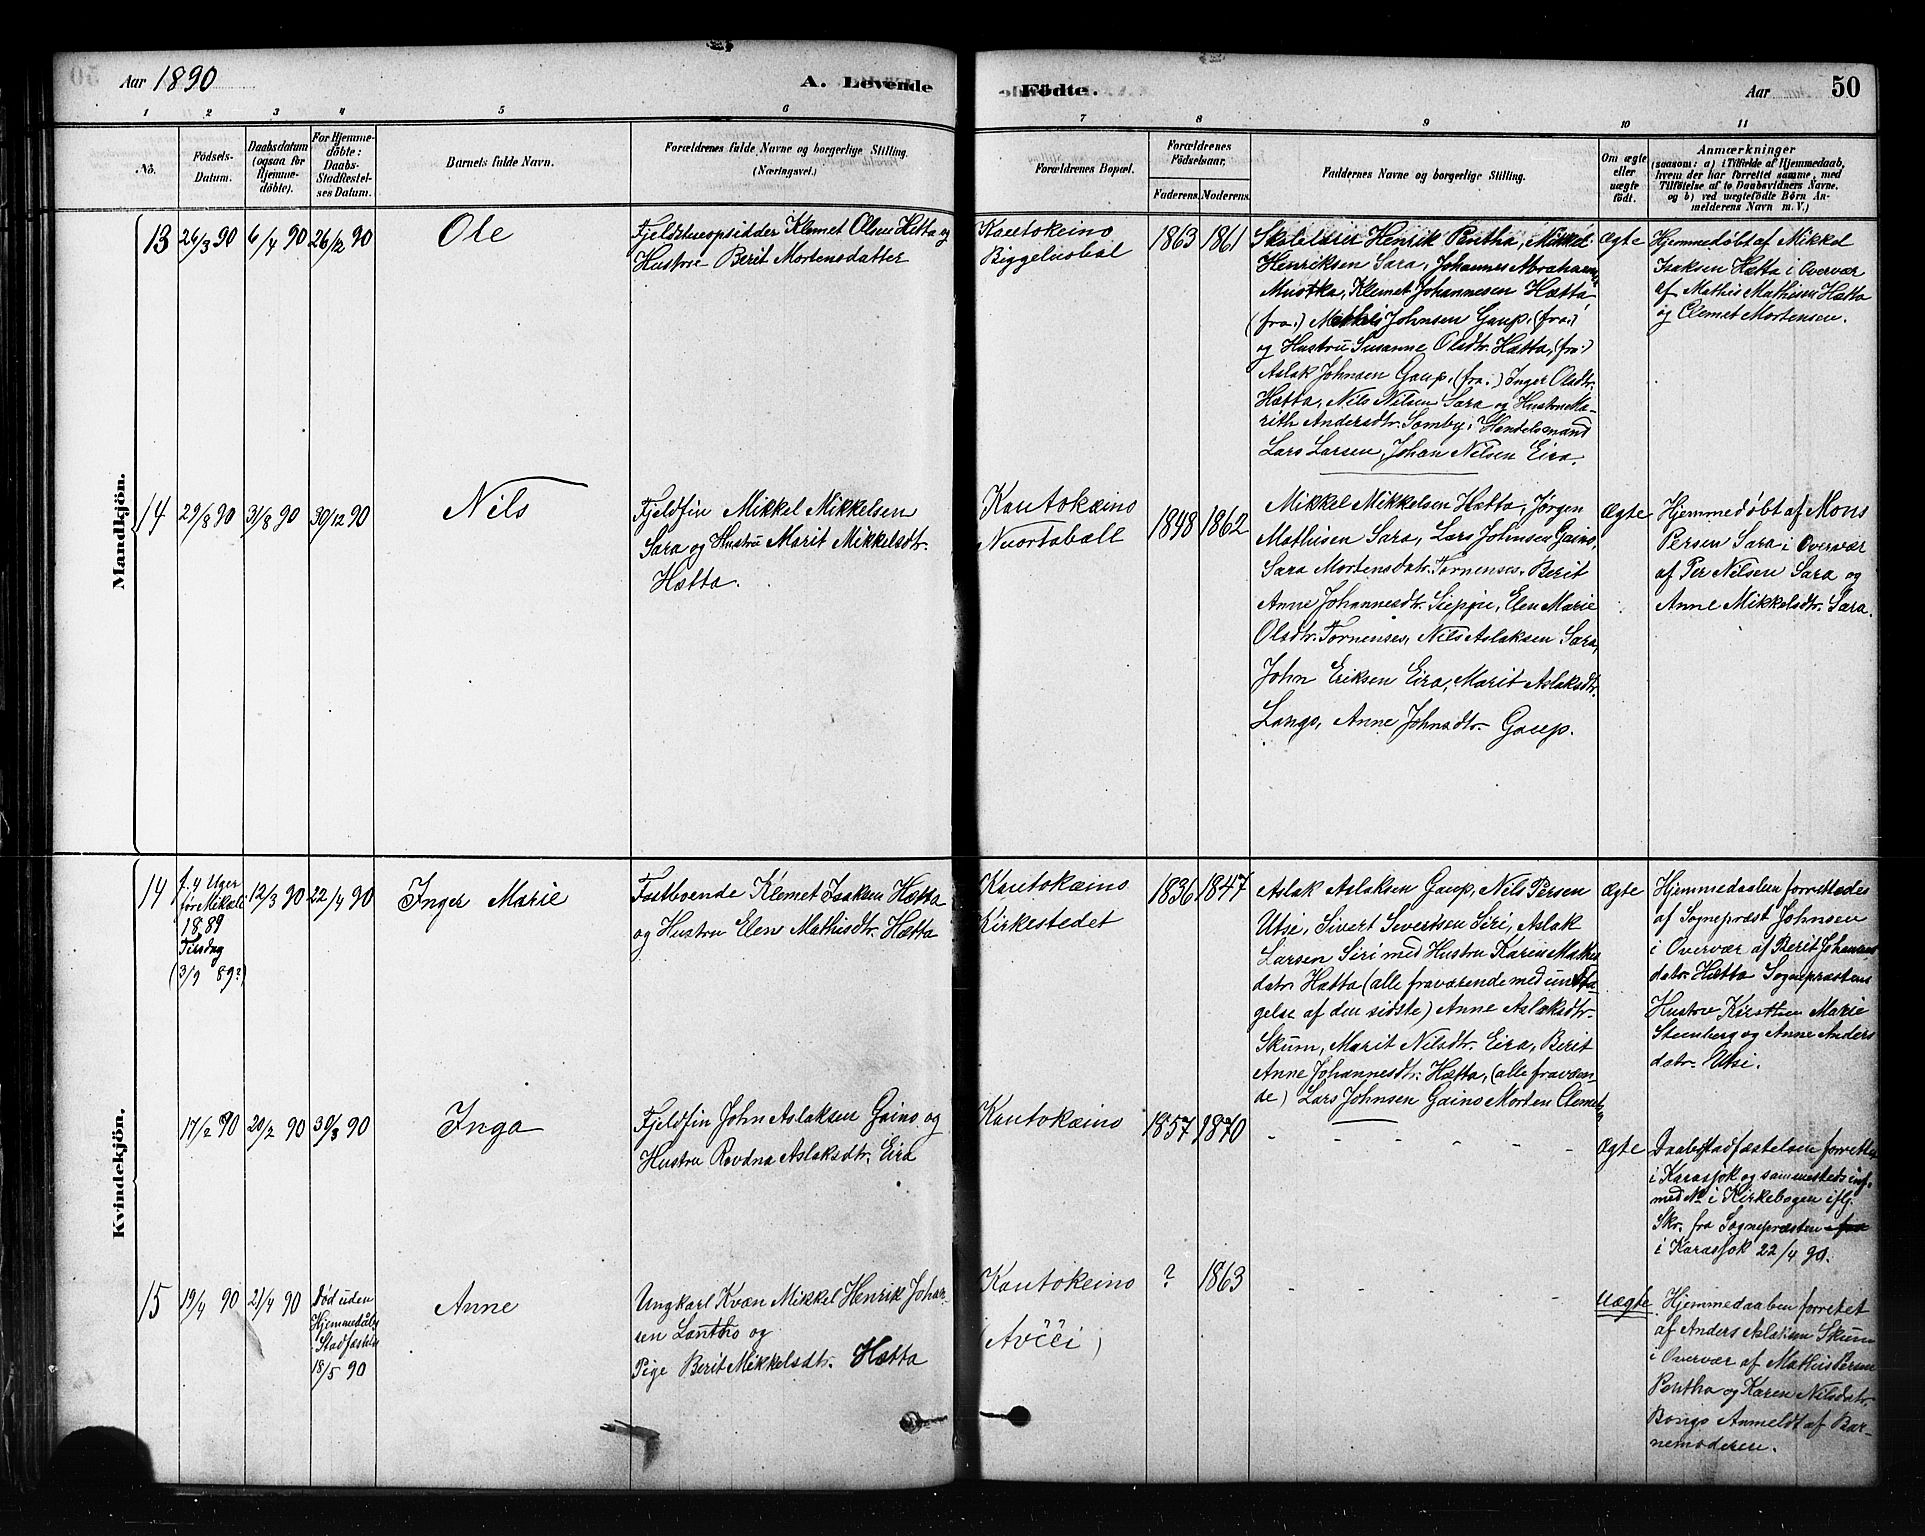 Aar 1890
A. Levende
Fødte.
Aar
50
1 2 3 4 5 6 7 8 9 10 11
No.
Fødsels-
Datum.
Daabsdatum
(ogsaa for
Hjemme-
døbte).
For Hjemme-
døbte:
Daabs-
Stadfæstel-
ses Datum.
Barnets fulde Navn.
Forældrenes fulde Navne og borgerlige Stilling.
(Næringsvei.)
Forældrenes Bopæl.
Forældrenes
Fødselsaar.
Faderens. Moderens.
Faddernes Navne og borgerlige Stilling.
Om ægte
eller
uægte
født.
Anmærkninger
(saasom: a) i Tilfælde af Hjemmedaab,
hvem der har forrettet samme, med
Tilføielse af to Daabsvidners Navne,
og b) ved uægtefødte Børn An-
melderens Navn m. V.)
Mandkjön.
13
26/3 90
6/4 90
26/12 90
Ole
Fjeldstueopsidder Klemet Olsen Hætta og
Hustru Berit Mortensdatter
Kautokeino
Biggeluobal
1863
1861
Skoleeleer Henrik Pentha, Mikkel
Henriksen Sara, Johannes Abrahams
Muotka, Klemet Johannesen Hætta
(fra.) Mathis Johnsen Gaup, (fra.)
og Hustru Susanne Olsdtr. Hætta, (fra.)
Aslak Johnsen Gaup, (fra.) Inger Olsdtr.
Hætta, Nils Nilsen Sara og Hustru Ma-
rith Andersdtr. Somby, Handelsmand
Lars Larsen, Johan Nilsen Eira.
Ægte
Hjemmedøbt af Mikkel
Isaksen Hætta i Overvær
af Mathis Mathisen Hætta
og Clemet Mortensen.
14
29/8 90
31/8 90
30/12 90
Nils
Fjeldfin Mikkel Mikkelsen
Sara og Hustru Marit Mikkelsdtr.
Hætta.
Kautokæino
Nuortaball
1848
1862
Mikkel Mikkelsen Hætta, Jørgen
Mathisen Sara, Lars Johnsen Gaino,
Sara Mortensdatr. Tornenses, Berit
Anne Johannesdtr. Sieppe, Elen Marie
Olsdtr. Tornenses, Nils Aslaksen Sara,
John Eriksen Eira, Marit Aslaksdtr.
Lango, Anne Johnsdtr. Gaup.
Ægte
Hjemmedøbt af Mons
Persen Sara i Overvær
af Per Nilsen Sara og
Anne Mikkelsdtr. Sara.
Kvindekjön.
14
f. 4 Uger
före Mikaeli
1889
Tirsdag
(3/9 89?)
12/3 90
22/4 90
Inger Marie
Fastboende Klemet Isaksen Hætta
og Hustru Elen Mathisdtr. Hætta
Kautokæino
Kirkestedet
1836
1847
Aslak Aslaksen Gaup, Nils Persen
Utsi, Sivert Severtsen Siri, Aslak
Larsen Siri med Hustru Karen Mathis
datr. Hætta (alle fraværende med undta-
gelse af den sidste) Anne Aslaksdtr.
Skum, Marit Nilsdtr. Eira, Berit
Anne Johannesdtr. Hætta, (alle fraværen-
de) Lars Johnsen Gaino Morten Clemets
Ægte
Hjemmedaaben forrettedes
af Sognepræst Johnsen
i Overvær af Berit Johannes
datr. Hætta Sognepræstens
Hustru Kirsthen Marie
Steenberg og Anne Anders
datr. Utsi.
17/2 90
20/2 90
30/3 90
Inga
Fjeldfin John Aslaksen Gaino og
Hustru Ravdna Aslaksdtr. Eira
Kautokæino
1857
1870
- - - - -
Ægte
Daabsstadfæstelsen forrettet
i Karasjok og sammesteds inf.
med No i Kirkebogen iflg.
Skr. fra Sognepræsten fra
i Karasjok 22/4 90.
15
19/4 90
21/4 90
Død uden
Hjemmedaabs
Stadfæstelse
18/5 90
Anne
Ungkarl Kvæn Mikkel Henrik Johan-
sen Lantto og
Pige Berit Mikkelsdtr. Hætta
Kautokeino
(Avččí)
?
1863
- - - - -
Uægte
Hjemmedaaben forrettet
af Anders Aslaksen Skum
i Overvær af Mathis Persen
Pentha og Karen Nilsdatr.
Bongo Anmeldt af Bar-
nemoderen.